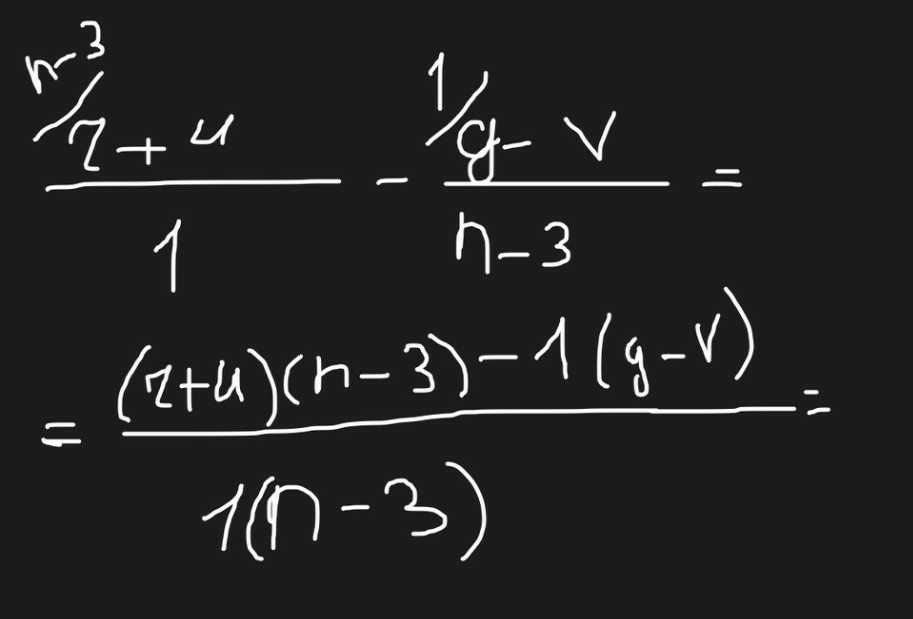 n-3/ r+u / 1 - 1/ g-v / n-3 =
= (r+u)(n-3)-1(g-v) / 1(n-3) =